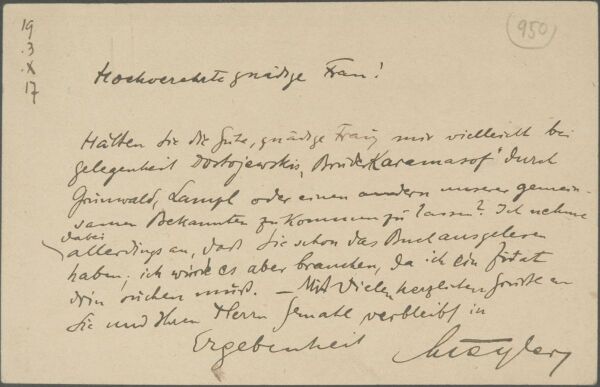 19
.3
.X
17
950
Hochverehrte gnädige Frau!
Hätten Sie die Güte, gnädige Frau, mir vielleicht bei
gelegenheit Dostojewskis „Brüder Karamasof" durch
Grünwald, Lampl oder einen andern unserer gemein-
samen Bekannten zukommen zu lassen? Ich nehme
dabei
allerdings an, daß Sie schon das Buch ausgelesen
haben; ich würde es aber brauchen, da ich ein Zitat
drin suchen muß. — Mit vielen herzlichen Grüßen an
Sie und Ihren Herrn Gemahl verbleibt in
Ergebenheit